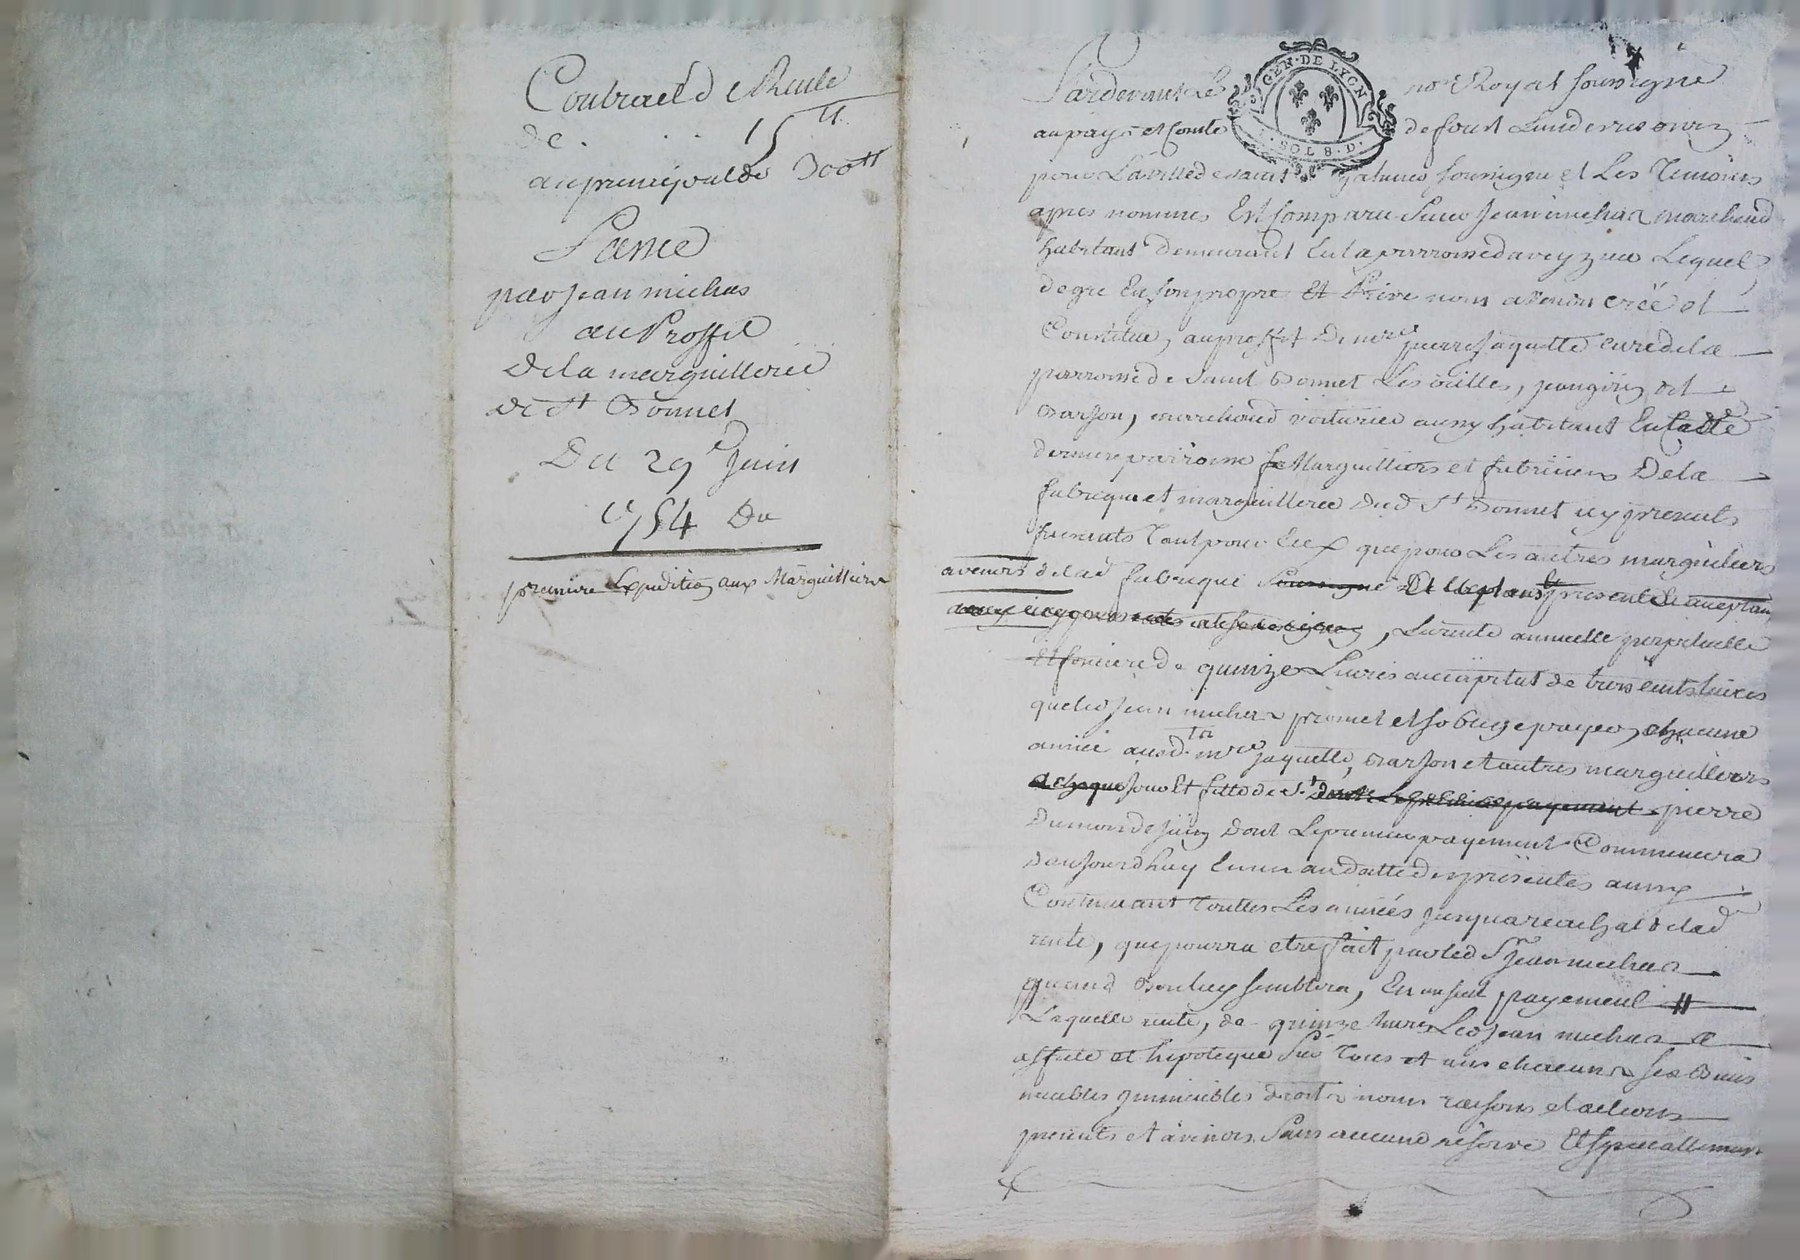 Contract de Rente
de . . . 15 ₶
au principal de 300 ₶
Passé
par Jean michas
au Proffit
De la marguillerie
de St Bonnet
Du 29e Juin
1754 Du
premiere Expedition aux Marguilliers
GEN. DE LYON
SOL 8. D.
Pardevant Le nore Royal soussigné
au pays et Comté de forest
pour La ville de saint galmier soussigné et Les Temoins
apres nommés Est Comparu sieur Jean michas marchand
habitant demeurant En la parroisse daveyzieu Lequel
de gré En son propre Et Privé nom a vendu créé et
Constitué, au proffit De mre pierre Jaquette curé de la
parroisse de saint Bonnet Les oulles,
Barjon, marchand voiturier aussy habitant En lade
derniere parroisse Marguilliers et fabriciens De la
fabrique et marguillerie Dud St Bonnet icy presents
tant pour Eux que pour Les autres marguilliers
avenirs de lad fabrique
, La rente annuelle perpetuelle
et fonciere de quinze Livres au capital de trois cents livres
que led Jean michas promet et soblige payer, chacune
année ausd. mre Jaquette, Barjon et autres marguilliers
a chaque jour Et fette de St pierre
Du mois de Juin Dont Le premier payement Commencera
daujourdhuy En un an datte des présentes ainsy
Continuant Touttes Les années jusqu'a rachat de lad
rente, que pourra etre fait par led Sr Jean michas
quand Bon luy semblera, En un seul payement
Laquelle rente, de quinze livres Led Jean michas a
assuré et hipotequé sur Tous et uns chacuns ses Biens
meubles immeubles droits noms raisons et actions
presents et avenirs sans aucune réserve Et speciallement